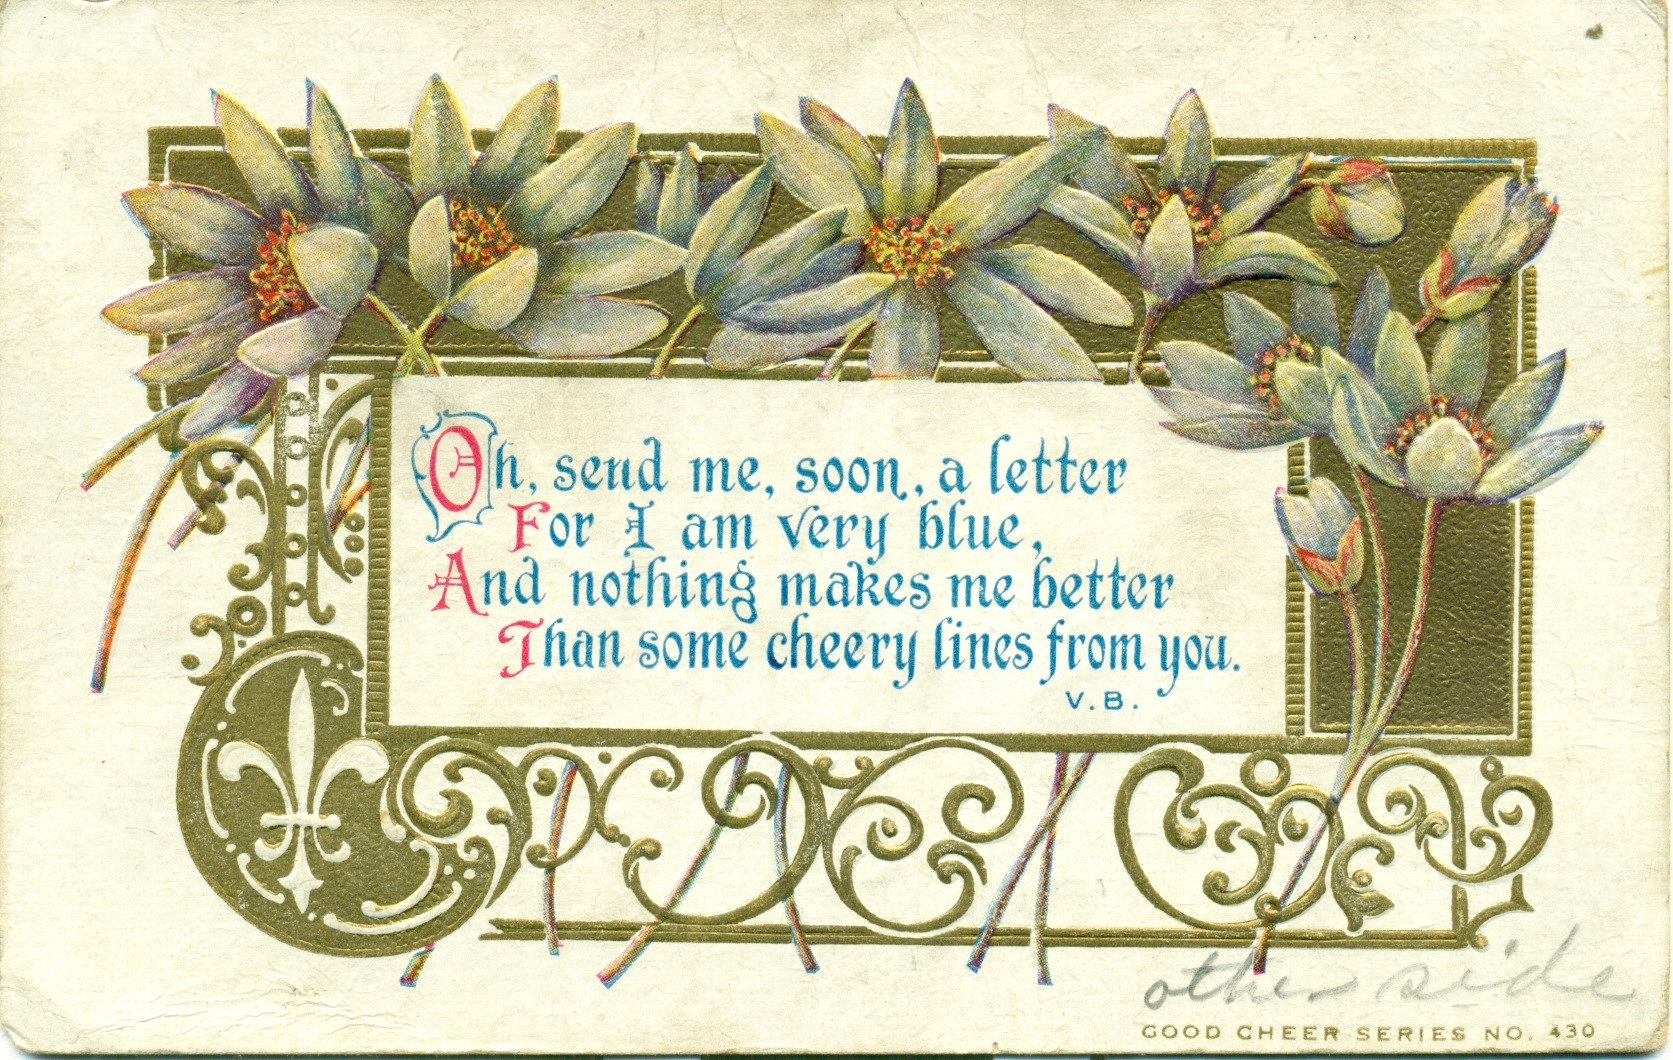 Oh, send me, soon, a letter
For I am very blue,
And nothing makes me better
Than some cheery lines from you.
V.B.
other side
GOOD CHEER SERIES NO. 430